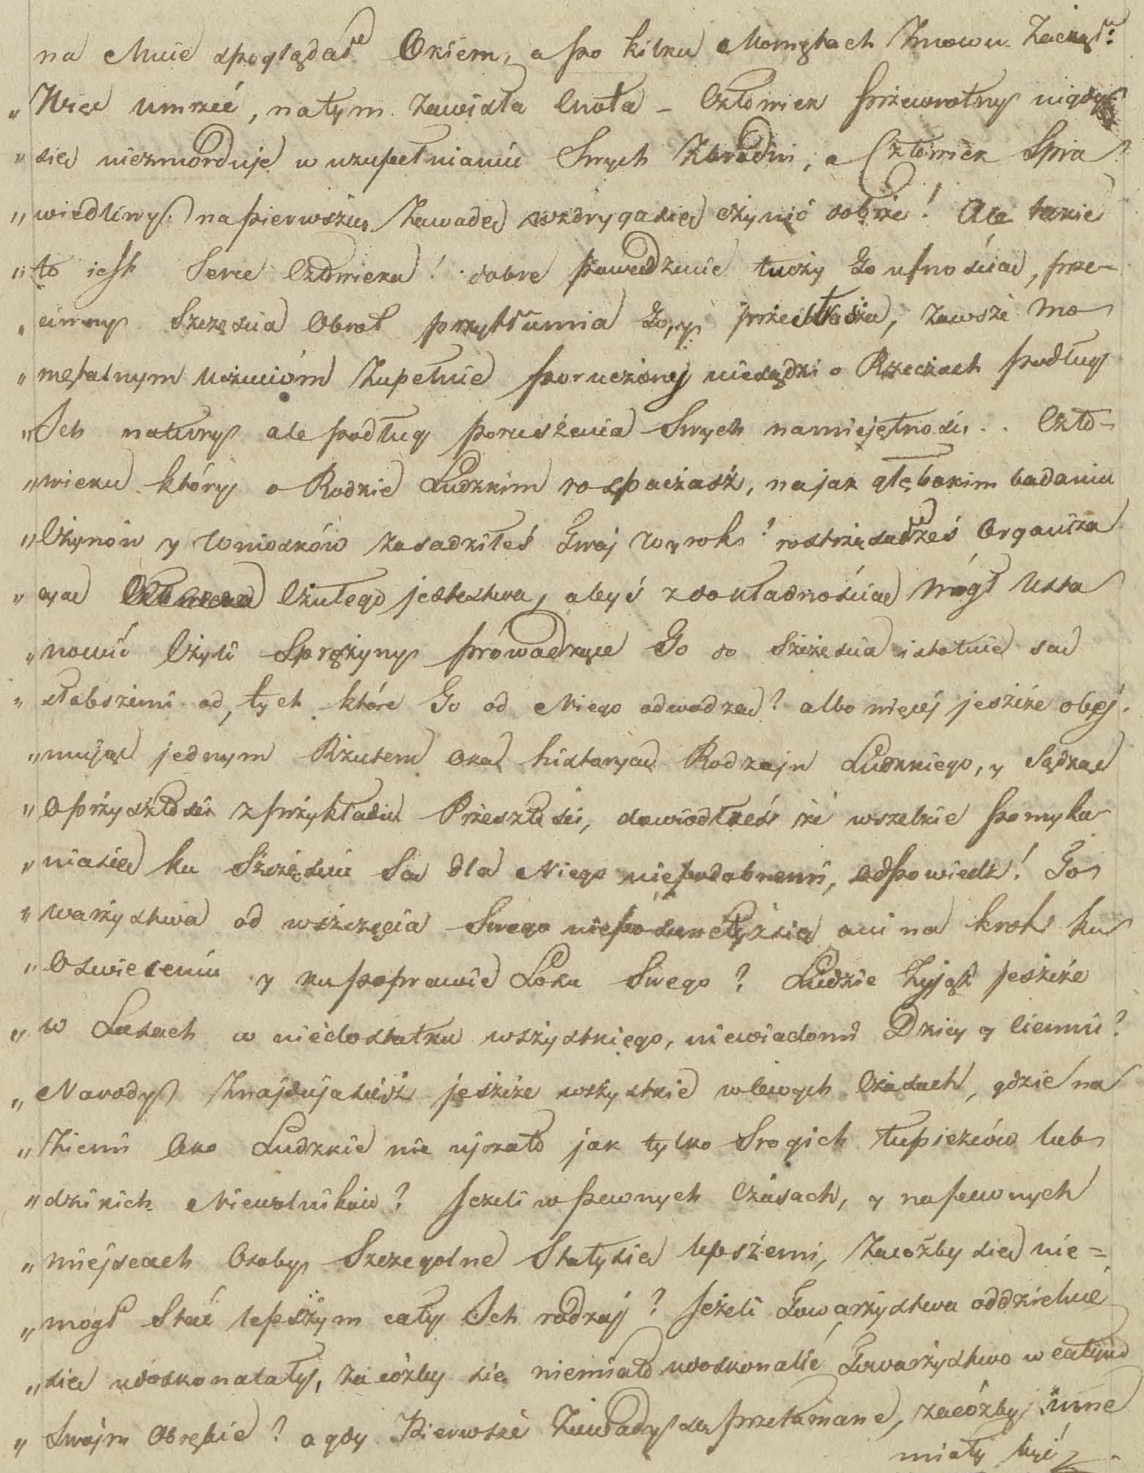 na Mnie spoglądał Okiem, a po kilku Momętach Znowu Zaczął:
„Więc umrzéć, natym zawisła Cnota – Człowiek przewrotny nigdy
„się niezmorduje w uzupełnianiu Swych Zbrodni, a Człowiek Spra
„wiedliwy na pierwszą Zawadę wzdrygasię czynić dobrze! Ale takie
„to iest Serce Człowieka! dobre powodzenie tuczy Go ufnością, prze-
„ciwny Szczęścia Obrot przytłumia Go, y przestrasza, zawsze mo
„mętalnym uczuciom Zupełnie poruczony niesądzi o Rzeczach podług
„Ich natury ale podług poruszenia Swych namiejętności.. Czło-
„wieku który o Rodzie Ludzkim rospaczasz, na jak głębokim badaniu
„Czynów y Wniosków zasadziłeś Twój wyrok? rostrząsałżeś Organiza
„cyą Czułego jestestwa, abyś z dokładnością mógł Usta
„nowić Czyli Sprężyny prowadzące Go do Szczęścia istotnie są
„słabszemi od tych które Go od Niego odwodzą? albo więcéj jeszcze obéj-
„mując jednym Rzutem oka historyą Rodzaju Ludzkiego, y Sądząc
„o przyszłości z przykładu Przeszłości, dowiodłżeś że wszelkie pomyka-
„niasię ku Szczęściu Są dla Niego niepodobnemi, odpowiedz! To
„warzystwa od wszczęcia Swego nie ani na krok ku
„Oswieceniu y ku poprawie Losu Swego? Ludzie Żyjąż jeszcze
„w Lasach w niedostatku wszystkiego, niewiadomi Dzicy y Ciemni?
„Narody Znajdująsięż jeszcze wszystkie w owych Czasach, gdzie na
„Ziemi Oko Ludzkie nie ujrzało jak tylko Srogich Łupiezców lub
„dzikich Niewolników? Jeżeli w pewnych Czasach, y na pewnych
„miejscach Osoby Szczególne Stałysię lepszemi, Zacóżby się nie=
„mógł Stać lepszym cały Ich rodzaj? Jeżeli Towarzystwa oddzielne
„się udoskonalały, Zacóżby się niemiało udoskonalić Towarzystwo w całym
„Swójm Obrębie? a gdy Pierwsze Zawady są przełamane, zacóżby inne
miały być